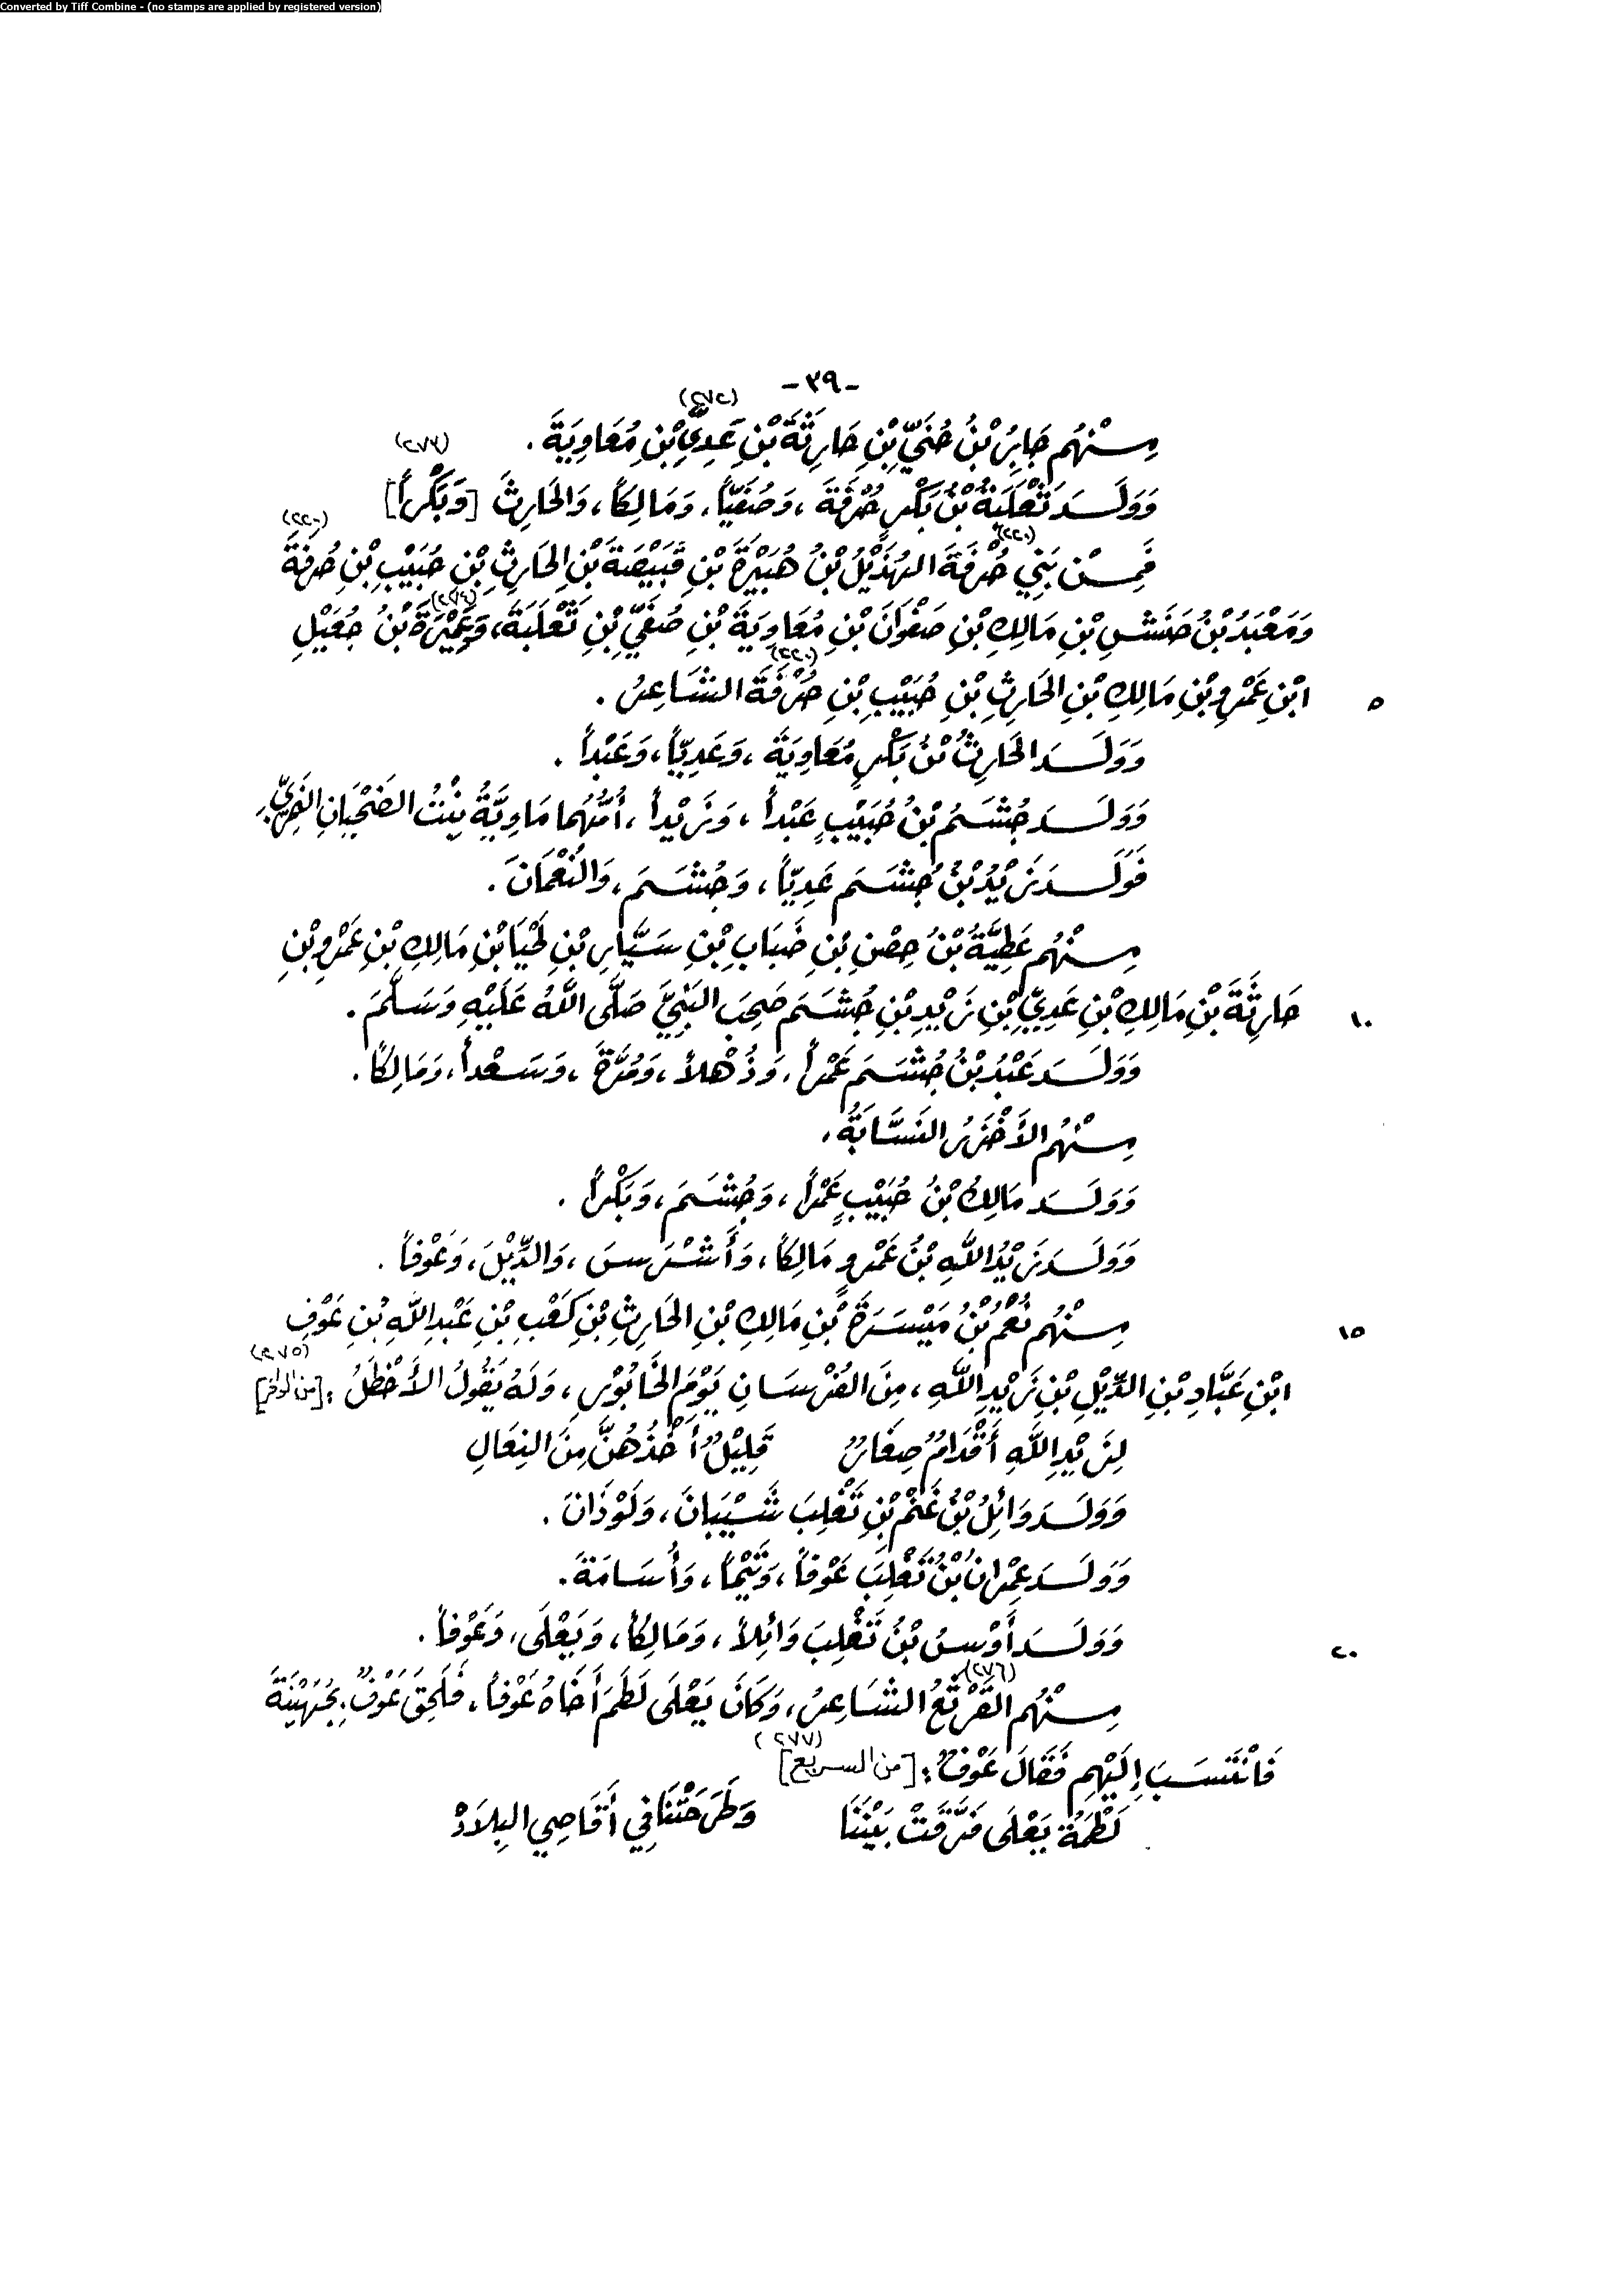 Converted by Tiff Combine - (no stamps are applied by registered version)
-٣٩-
مِنْهُم جَابِرُ بْنُ حُنَيِّ بْنِ حَارِثَةَ بْنِ عَدِيِّ (٢٧٢) بْنِ مُعَاوِيَةَ .
وَوَلَدَ ثَعْلَبَةُ بْنُ بَكْرٍ حُرْفَةَ ، وَصُفَيّاً، وَمَالِكاً، وَالحَارِثَ [وَبَكْراً] (٢٧٣)
فَمِنْ بَنِي حُرْفَةَ (٢٢٠) الهُذَيْلُ بْنُ هُبَيْرَةَ بْنِ قَبِيْصَةَ بْنِ الحَارِثِ بْنِ حُبَيْبِ بْنِ حُرفَةَ (٢٢٠)
وَمَعْبَدُ بْنُ حَنَشِ بْنِ مَالِكِ بْنِ صَفْوَانَ بْنِ مُعَاوِيَةَ بْنِ صُفَيِّ بْنِ ثَعْلَبَةَ، وَعَمِيْرَةُ (٢٧٤) بْنُ جُعَيْلِ
ابْنِ عَمْرِو بْنِ مَالِكِ بْنِ الحَارِثِ بْنِ حُبَيْبِ بْنِ حُرْفَةَ (٢٢٠) الشَّاعِرُ . ٥
وَوَلَدَ الحَارِثُ بْنُ بَكْرٍ مُعَاوِيَةَ ، وَعَدِيّاً، وَعَبْداً .
وَوَلَدَ جُشَمُ بْنُ حُبَيْبٍ عَبْداً ، وَزَيْداً ، أُمُّهُمَا مَاوِيَّةُ بِنْتُ الضَّحْيَانِ النَّمَرِيِّ.
فَوَلَدَ زَيْدُ بْنُ جُشَمَ عَدِيّاً ، وَجُشَمَ، وَالنُّعْمَانَ .
مِنْهُم عَطِيَّةُ بْنُ حِصْنِ بْنِ ضَبَابِ بْنِ سَيَّارِ بْنِ لَحْيَا بْنِ مَالِكِ بْنِ عَمْرِو بْنِ
حَارِثَةَ بْنِ مَالِكِ بْنِ عَدِيِّ بْنِ زَيْدِ بْنِ جُشَمَ صَحِبَ النَّبِيَّ صَلَّى اللَّهُ عَلَيْهِ وَسَلَّمَ . ١٠
وَوَلَدَ عَبْدُ بْنُ جُشَمَ عَمْراً، وَذُهْلاً ، وَمُرَّةَ ، وَسَعْداً، وَمَالِكاً .
مِنْهُم الأَخْزَرُ النَّسَّابَةُ .
وَوَلَدَ مَالِكُ بْنُ حُبَيْبٍ عَمْراً ، وَجُشَمَ ، وَبَكْراً .
وَوَلَدَ زَيْدُ اللهِ بْنُ عَمْرٍو مَالِكاً، وَأَشْرَسَ ، وَالدِّيْلَ ، وَعَوْفاً .
مِنْهُم نُعْمُ بْنُ مَيْسَرَةَ بْنِ مَالِكِ بْنِ الحَارِثِ بْنِ كَعْبِ بْنِ عَبْدِ اللَّهِ بْنِ عَوْفِ ١٥
ابْنِ عَبَّادِ بْنِ الدِّيْلِ بْنِ زَيْدِ اللَّهِ ، مِنَ الفُرْسَانِ يَوْمَ الخَابُوْرِ، وَلَهُ يَقُولُ الأَخْطَلُ (٢٧٥) : [من الوافر]
لِزَيْدِ اللَّهِ أَقْدَامٌ صِغَارٌ قَلِيْلٌ أَخْذُهُنَّ مِنَ النِّعَالِ
وَوَلَدَ وَائِلُ بْنُ غَنْمِ بْنِ تَغْلِبَ شَيْبَانَ ، وَلَوْذَانَ .
وَوَلَدَ عِمْرَانُ بْنُ تَغْلِبَ عَوْفاً ، وَتَيْماً ، وَأُسَامَةَ .
وَوَلَدَ أَوْسُ بْنُ تَغْلِبَ وَائِلاً ، وَمَالِكاً ، وَيَعْلَى، وَعَوْفاً . ٢٠
مِنْهُم القَرْثَعُ (٢٧٦) الشَّاعِرُ، وَكَانَ يَعْلَى لَطَمَ أَخَاهُ عَوْفاً، فَلَحِقَ عَوْفٌ بِجُهَيْنَةَ
فَانْتَسَبَ إِلَيْهِم فَقَالَ عَوْفٌ : [من السريع] (٢٧٧)
لَطْمَةُ يَعْلَى فَرَّقَتْ بَيْنَنَا وَطَرَحَتْنَا فِي أَقَاصِي البِلَادْ